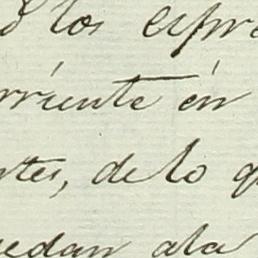 los espre
rriente én
ntes, de lo q
uedan ala